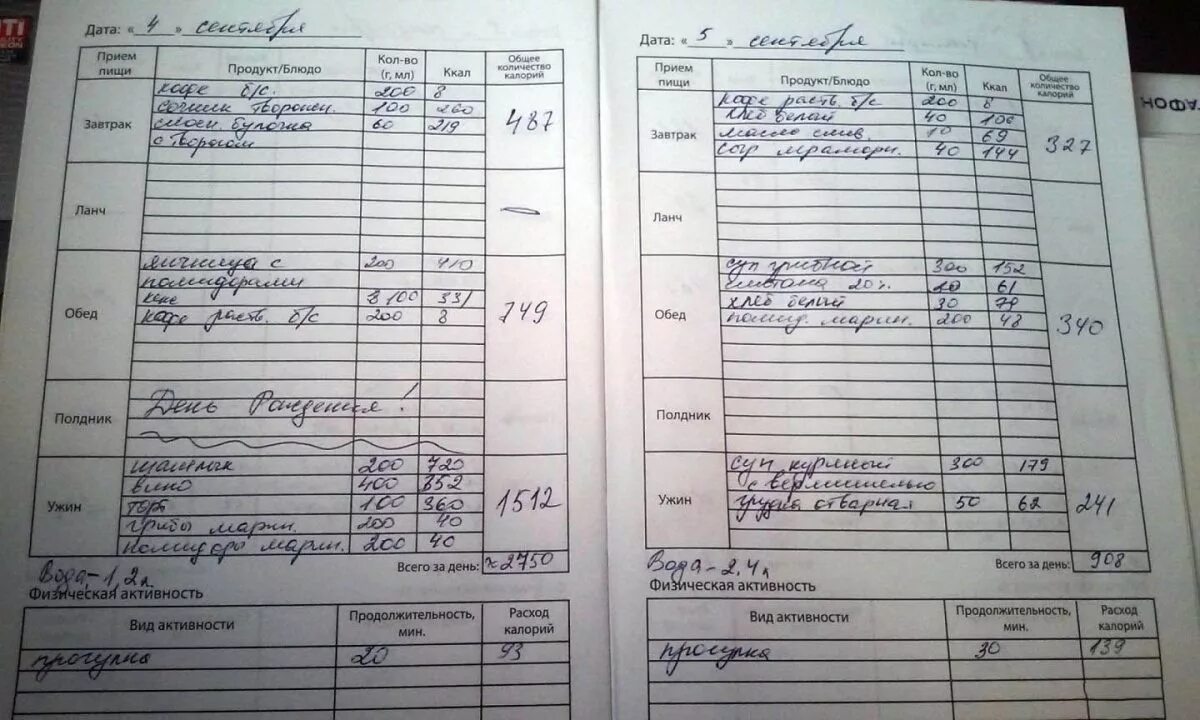 Дата: « 4 » сентября
Прием пищи | Продукт/Блюдо | Кол-во (г, мл) | Ккал | Общее количество калорий
Завтрак | кофе б/с. | 200 | 8 | 487
сочник творожн. | 100 | 260
слоен. булочка | 60 | 219
с творогом
Ланч | —
Обед | яичница с | 200 | 410 | 749
помидорами
кекс | 100 | 331
кофе раств. б/с | 200 | 8
Полдник | День Рождения!
Ужин | шашлык | 200 | 720 | 1512
вино | 400 | 352
торт | 100 | 360
грибы марин. | 200 | 40
помидоры марин. | 200 | 40
Всего за день: ≈2750
Вода – 1,2 л
Физическая активность
Вид активности | Продолжительность, мин. | Расход калорий
прогулка | 20 | 93
Дата: « 5 » сентября
Прием пищи | Продукт/Блюдо | Кол-во (г, мл) | Ккал | Общее количество калорий
Завтрак | кофе раств. б/с | 200 | 8 | 327
хлеб белый | 40 | 106
масло слив. | 10 | 69
сыр мраморн. | 40 | 144
Ланч
Обед | суп грибной | 300 | 152 | 340
сметана 20% | 61
хлеб белый | 30 | 79
помид. марин. | 200 | 48
Полдник
Ужин | суп куриный | 300 | 179 | 241
с вермишелью
грудка отварная | 50 | 62
Всего за день: 908
Вода – 2,4 л
Физическая активность
Вид активности | Продолжительность, мин. | Расход калорий
прогулка | 30 | 139